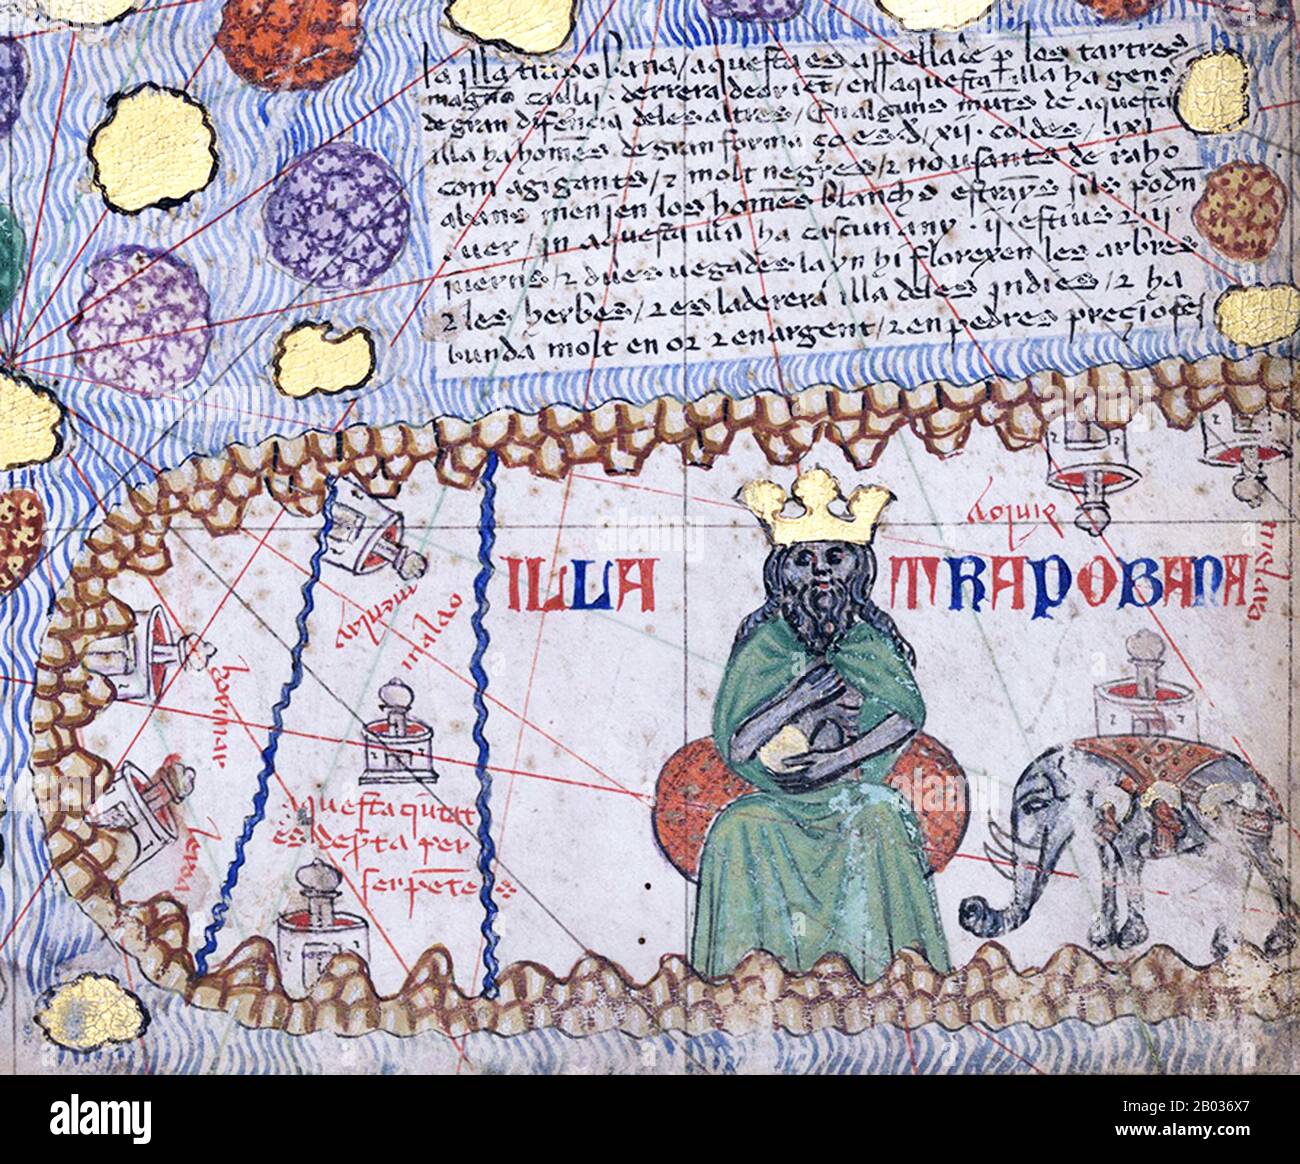 la illa trapobana / aquesta es appellade p los tartres
magno caulij · derrera de orient / en aquesta illa ha gens
de gran difencia deles altres / En alguns munts de aquesta
illa ha homẽs de gran forma ço es d xij · coldes / axi
com agigants / ⁊ molt negres / ⁊ no usants de raho
abans menjen los homẽs blanchs estrayns sils podẽn
auer / jn aquesta illa ha cascun any · ij estius ⁊ ij ·
iuerns ⁊ dues uegades layn hi florexen les arbres
⁊ les herbes / ⁊ es la derera illa deles jndies / ⁊ ha
bunda molt en or ⁊ en argent / ⁊ en pedres precioses
ILLA TRAPOBANA
malao
hormar
leroa
menlay
dinloy
melaro
aquesta qutat
és depta per
serpẽts
alamy
Image ID: 2B036X7
www.alamy.com